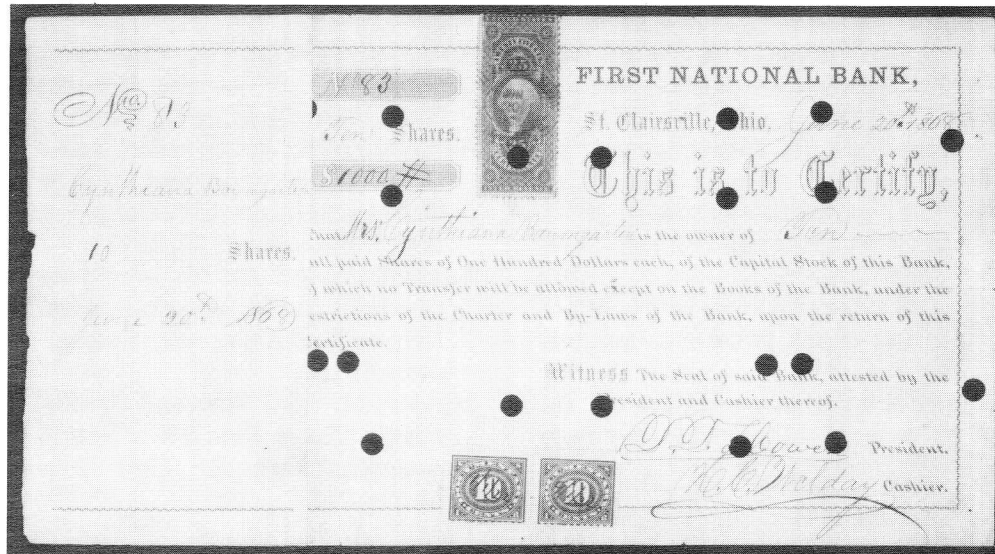 No 83
Cynthiana
10 Shares.
June 20th 1868
No 83
Ten Shares.
$1000
FIRST NATIONAL BANK,
St. Clairsville, Ohio. June 20th 1868
This is to Certify,
Mrs. Cynthiana is the owner of Ten
ull paid Shares of One Hundred Dollars each, of the Capital Stock of this Bank,
f which no Transfer will be allowed except on the Books of the Bank, under the
estrictions of the Charter and By-Laws of the Bank, upon the return of this
ertificate.
Witness The Seal of said Bank, attested by the
President and Cashier thereof.
President.
Cashier.
10